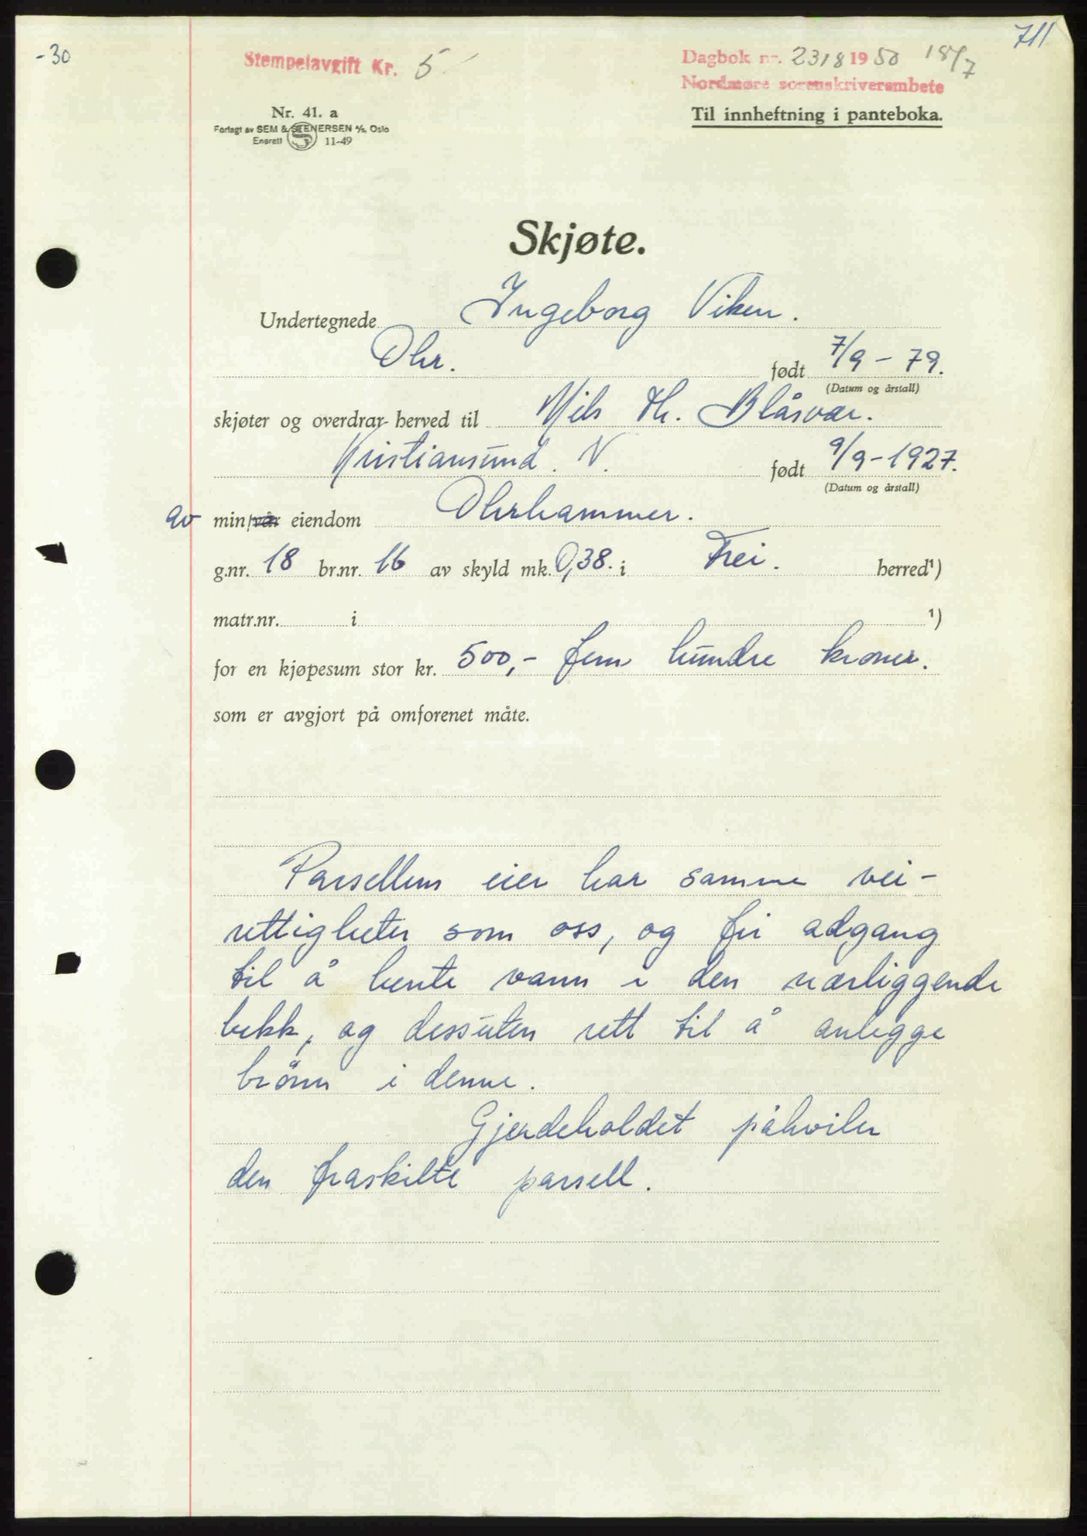 711
-30
Stempelavgift Kr. 5
Dagbok nr. 2318 1950 18/7
Nordmøre sorenskriverembete
Til innheftning i panteboka.
Nr. 41. a
Forlagt av SEM & STENERSEN A/S, Oslo
Enerett 11-49
Skjøte.
Undertegnede Ingeborg Viken.
Ohr. født 7/9 - 79.
(Datum og årstall)
skjøter og overdrar herved til Nils Th. Blåsvær.
Kristiansund. N. født 9/9-1927.
(Datum og årstall)
av min/vår eiendom Ohrhammer.
g.nr. 18 br.nr. 16 av skyld mk. 0,38. i Frei. herred¹)
matr.nr. i ¹)
for en kjøpesum stor kr. 500,- fem hundre kroner.
som er avgjort på omforenet måte.
Parsellens eier har samme vei-
rettigheter som oss, og fri adgang
til å hente vann i den nærliggende
bekk, og dessuten rett til å anlegge
brönn i denne.
Gjerdeholdet påhviler
den fraskilte parsell.